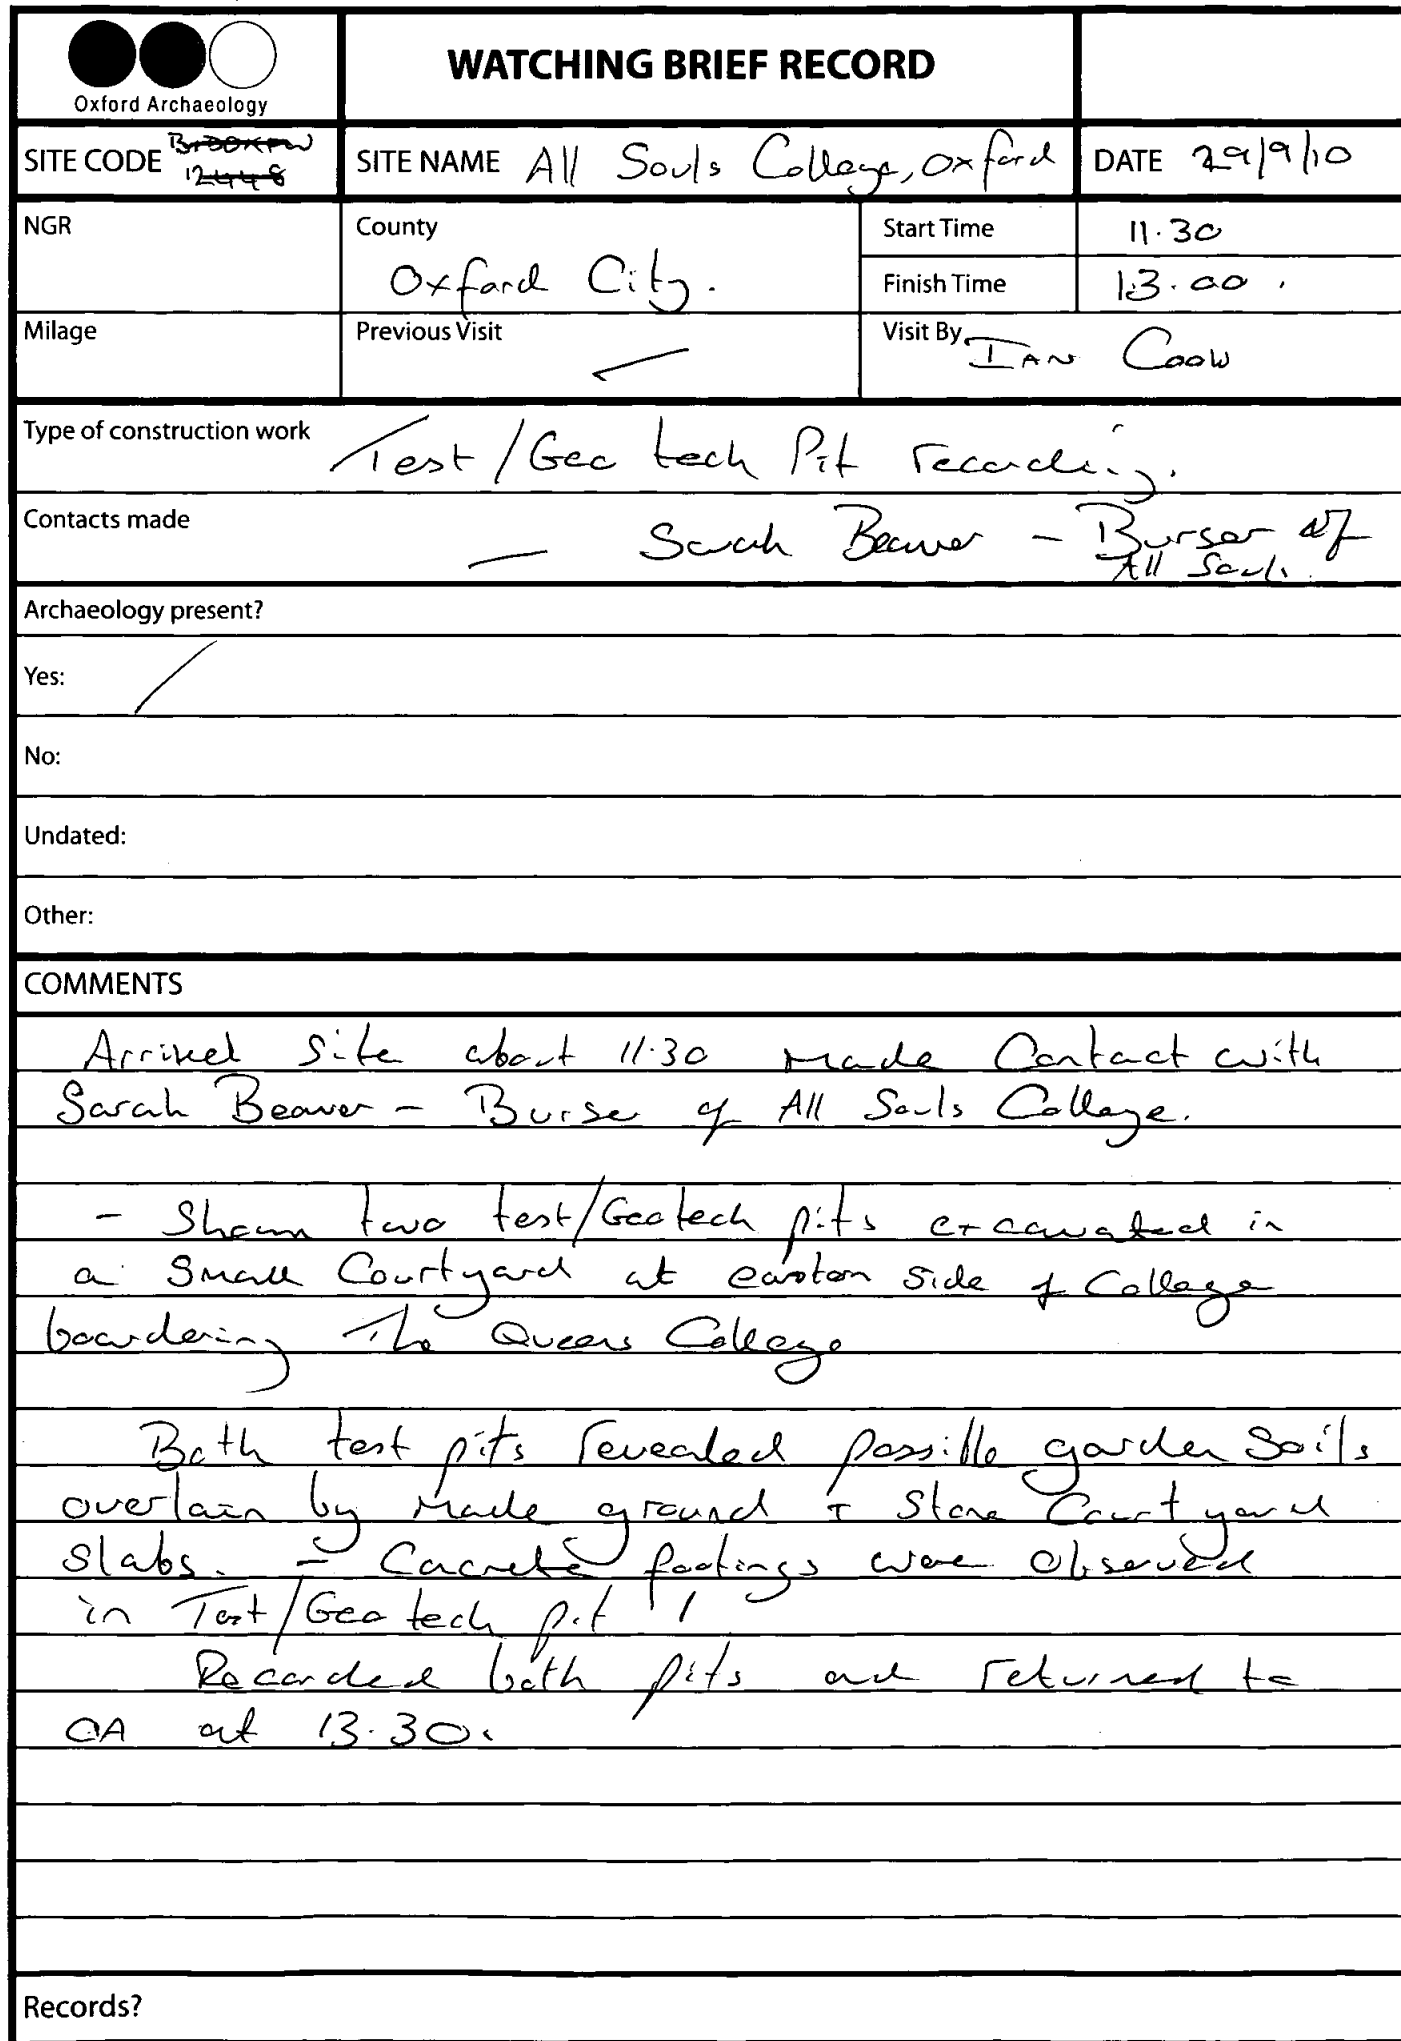 WATCHING BRIEF RECORD
Oxford Archaeology
SITE CODE
12448
SITE NAME All Souls College, Oxford
DATE 29/9/10
NGR
County
Oxford City.
Start Time 11.30
Finish Time 13.00.
Milage
Previous Visit
Visit By IAN
Type of construction work Test/Geo tech Pit recording.
Contacts made
— Sarah Beaver - Burser of
All Souls
Archaeology present?
Yes: /
No:
Undated:
Other:
COMMENTS
Arrived Site about 11.30 Made Contact with
Sarah Beaver - Burser of All Souls College.
- Shown two test/Geotech pits excavated in
a Small Courtyard at eastern side of College
boardering The Queens College
Both test pits revealed possible garden Soils
overlain by Made ground + Stone Courtyard
Slabs. - Concrete footings were observed
in Test/Geo tech pit 1
Recorded both pits and returned to
OA at 13.30.
Records?